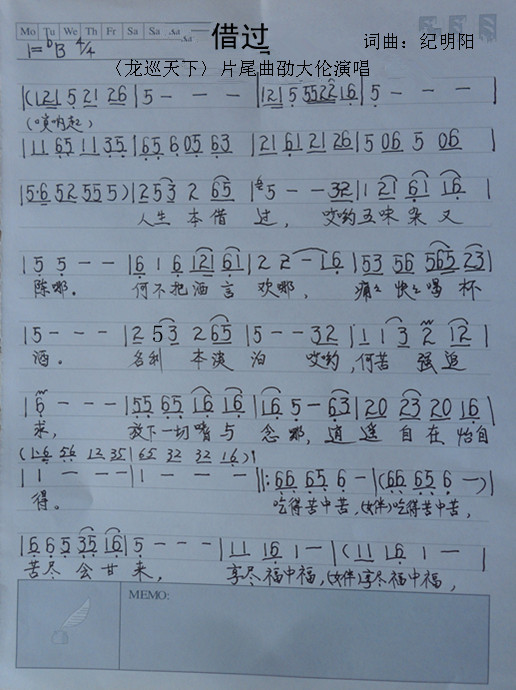 Mo Tu We Th Fr Sa Sa
借过
词曲：纪明阳
1=♭B 4/4
〈龙巡天下〉片尾曲劭大伦演唱
|(1 21 5 21 26 |5 - - - |121 5 5522 16 |5 - - - |
(唢呐起)
|11 65 11 35 |65 6 05 63 |21 61 21 26 |5 06 5 06 |
|5·6 52 55 5) |2 53 2 65 |5 - - 32 |1 21 61 16 |
人生本借过，哎哟五味杂又
|5 5 - - |6 1 6 121 61 |2 2 - 16 |53 56 565 23 |
陈哪。何不把酒言欢哪，痛痛快快喝杯
|5 - - - |2 53 2 65 |5 - - 32 |1 1 3 2 12 |
酒。名利本淡泊 哎哟，何苦强追
|6 - - - |55 65 16 16 |16 5 - 63 |20 23 20 16 |
求，放下一切嗔与念哪，逍遥自在怡自
(1·6 56 12 35 |65 32 32 16)|
|1 - - - |1 - - - ||:66 65 6 - |(66 65 6 -) |
得。吃得苦中苦，(女伴)吃得苦中苦，
|6 6 5 35 16 |5 - - - |11 16 1 - |(11 16 1 - |
苦尽会甘来，享尽福中福，(女伴)享尽福中福，
MEMO: